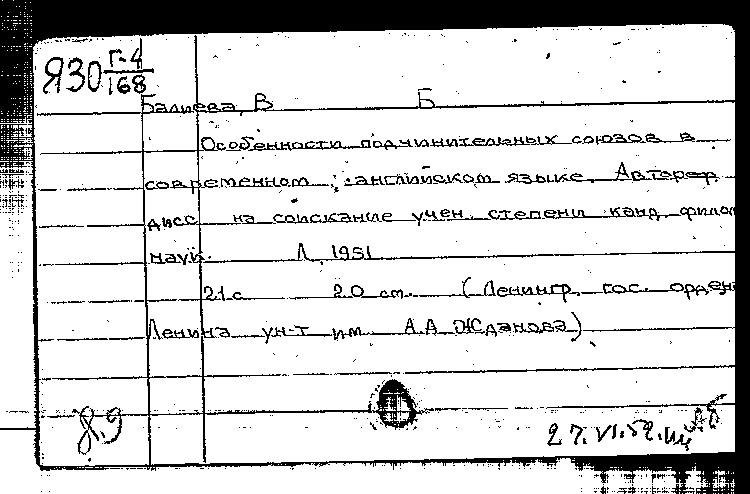 Я30 Г-4
168
Балиева, В Б
Особенности подчинительных союзов в
современном английском языке. Автореф
дисс на соискание учен. степени канд. филол
наук. Л, 1951
21 с 20 см. (Ленингр. гос. орден
Ленина ун-т им. А.А Жданова)
8.9
27.VI.52.